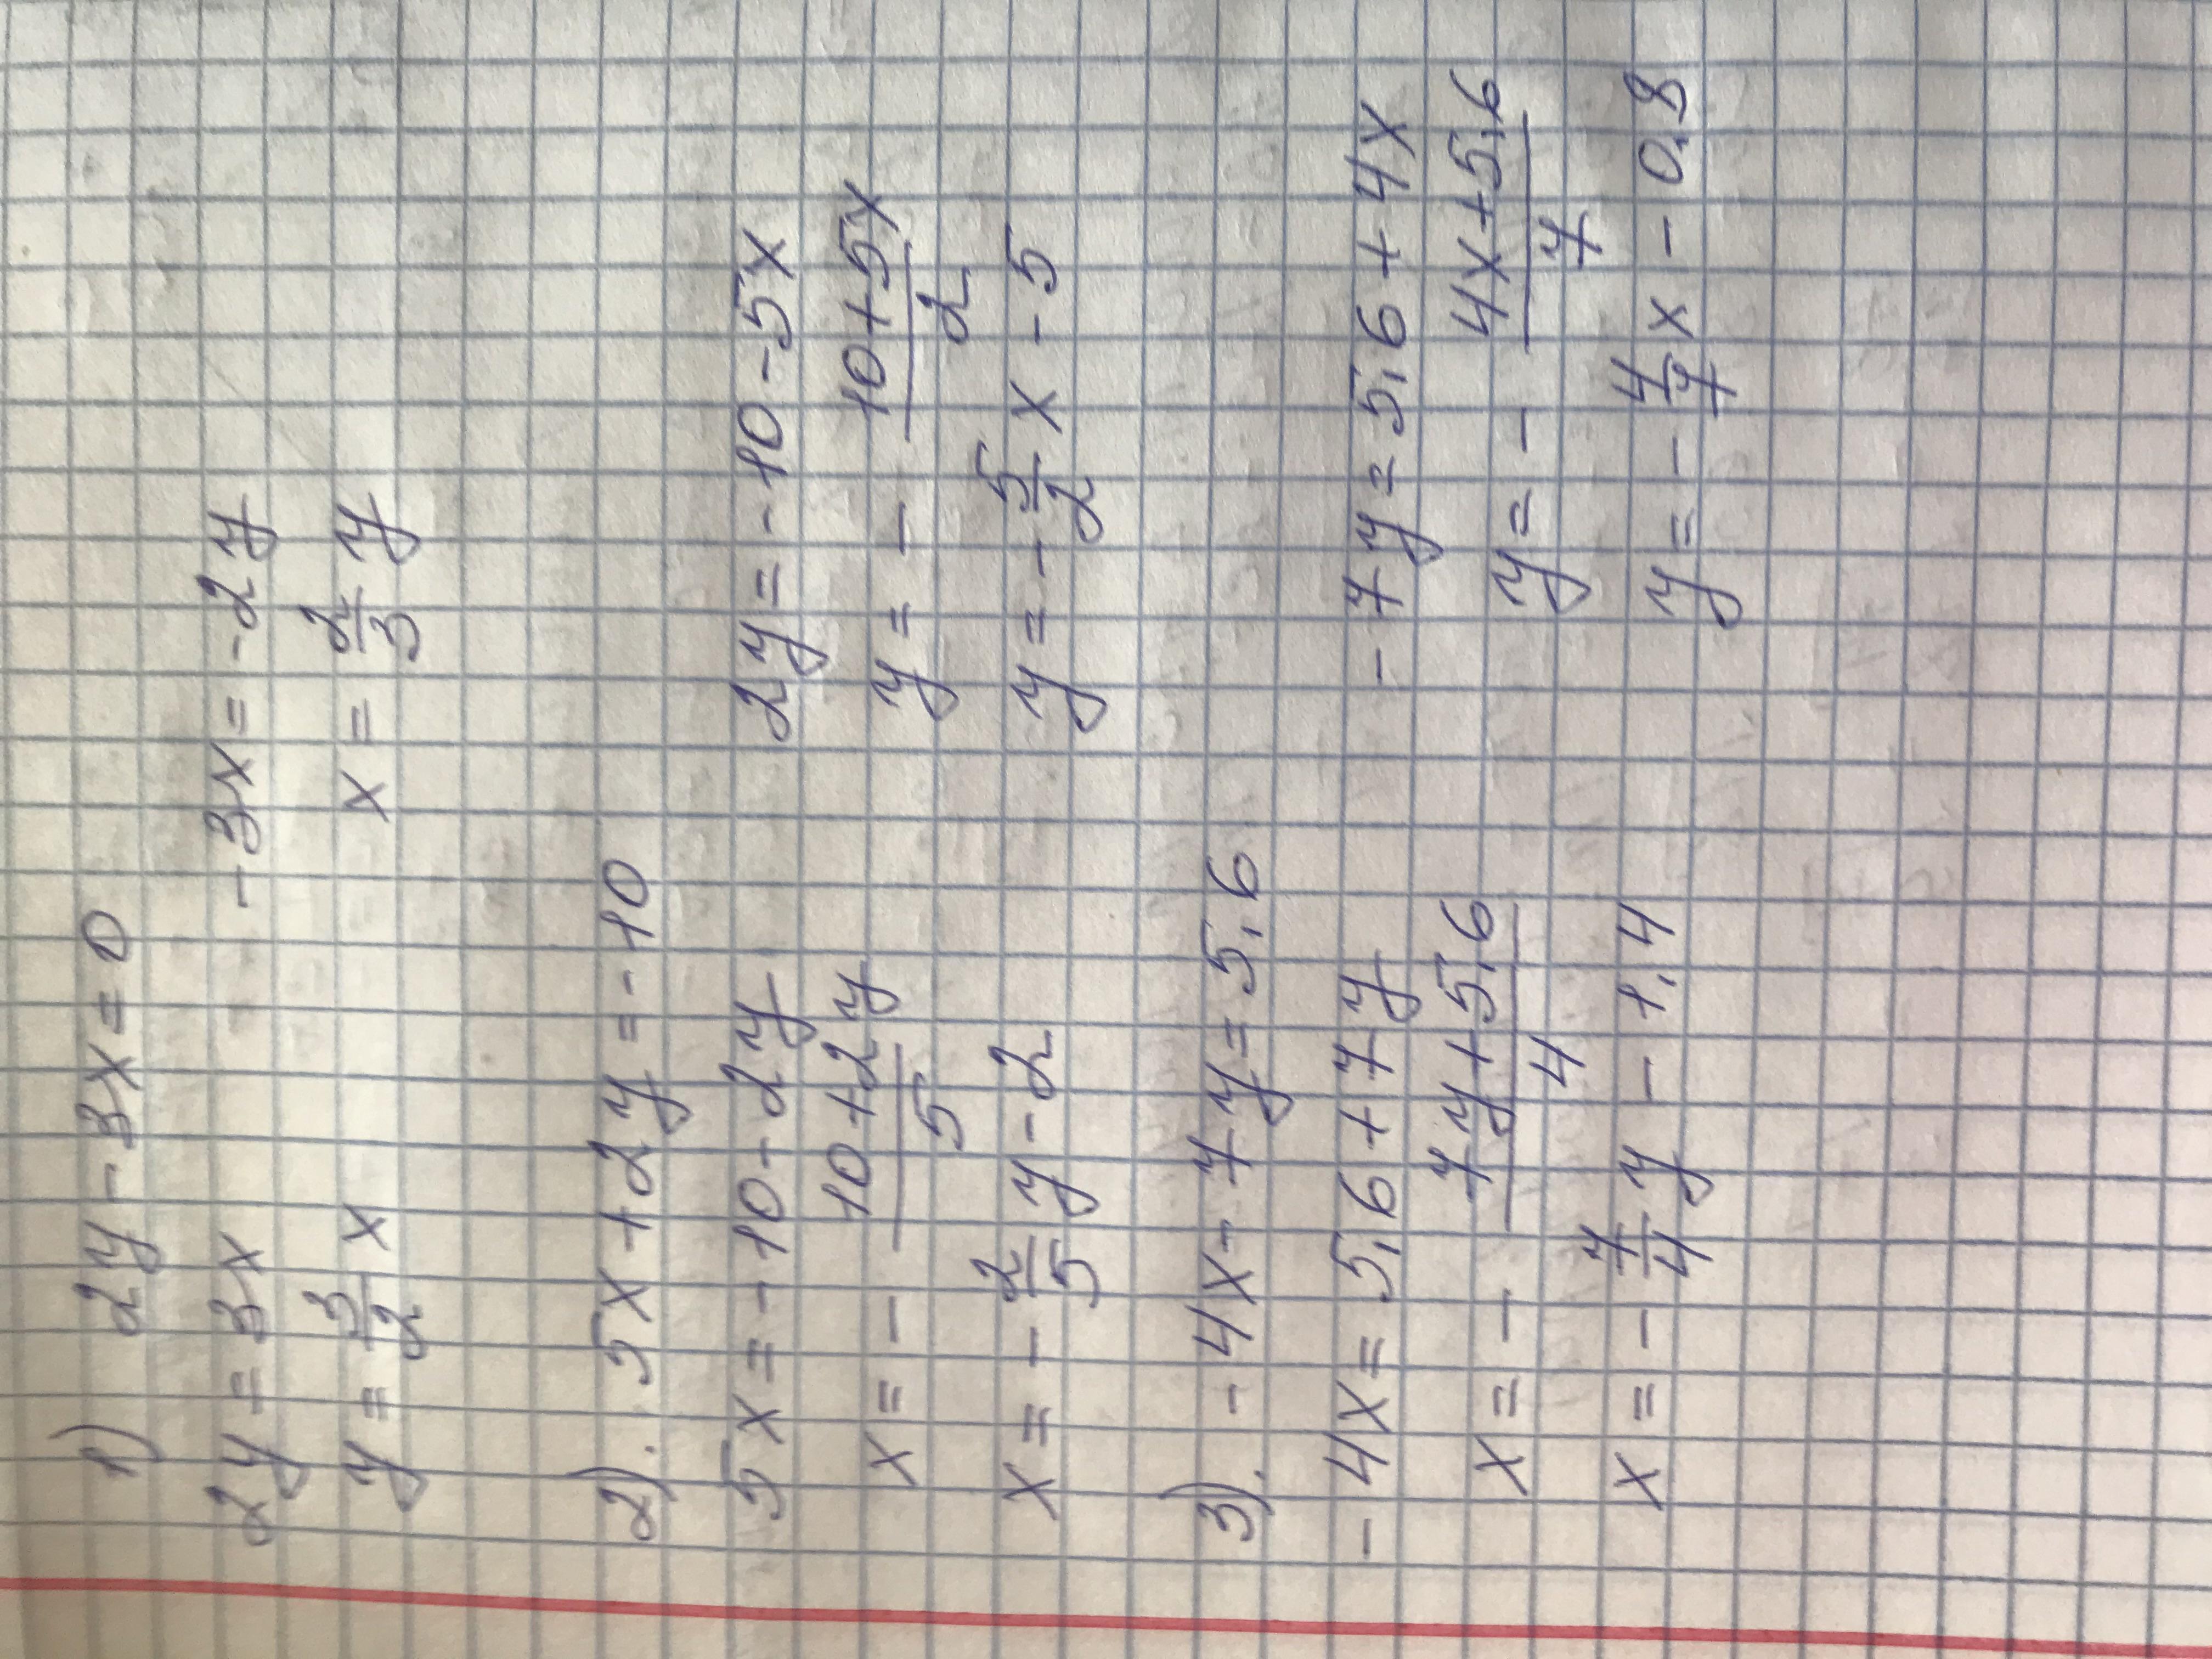 1) 2y - 3x = 0
2y = 3x   -3x = -2y
y = 3/2 x   x = 2/3 y
2). 5x + 2y = -10
5x = -10 - 2y   2y = -10 - 5x
x = - (10+2y)/5   y = - (10+5x)/2
x = - 2/5 y - 2   y = - 5/2 x - 5
3). - 4x - 7y = 5,6
- 4x = 5,6 + 7y   - 7y = 5,6 + 4x
x = - (7y+5,6)/4   y = - (4x+5,6)/7
x = - 7/4 y - 1,4   y = - 4/7 x - 0,8